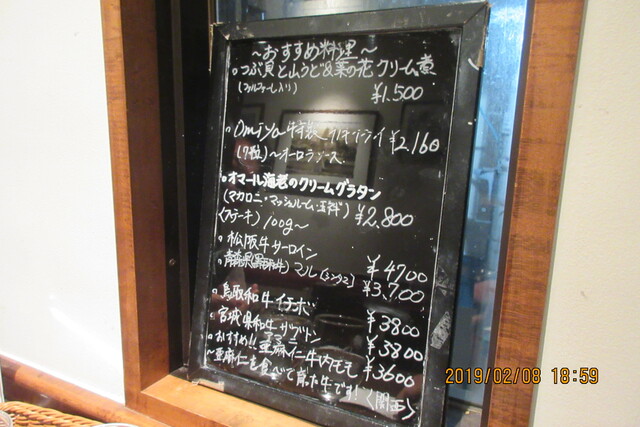 ～おすすめ料理～
・つぶ貝と山うど&菜の花クリーム煮
(ファルファーレ入り) ¥1,500
・Omiya特製 カキフライ ¥2,160
(7粒)～オーロラソース
・オマール海老のクリームグラタン
(マカロニ・マッシュルーム・) ¥2,800
〈ステーキ〉100g～
・松阪牛サーロイン ¥4700
・青森県(黒毛和牛) マル(シンタマ) ¥3,700
・鳥取和牛イチボ ¥3800
・宮城県和牛ザブトン ¥3800
・おすすめ!! 亜麻仁牛内モモ ¥3600
アマニ
～亜麻仁を食べて育った牛です!〈関西〉
2019/02/08 18:59